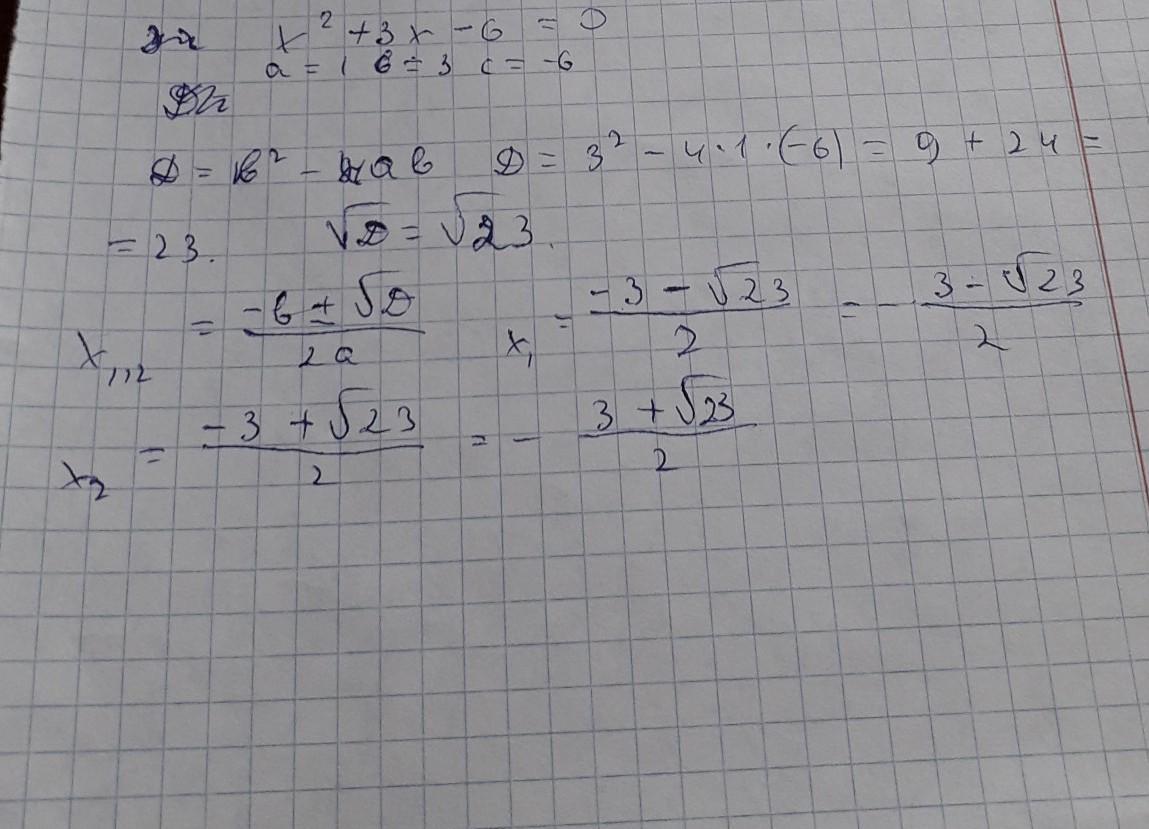 x² + 3x - 6 = 0
a = 1 в = 3 c = -6
D = в² - 4aв D = 3² - 4·1·(-6) = 9 + 24 =
= 23. √D = √23.
x₁,₂ = (-в ± √D)/2a x₁ = (-3 - √23)/2 = - (3 - √23)/2
x₂ = (-3 + √23)/2 = - (3 + √23)/2